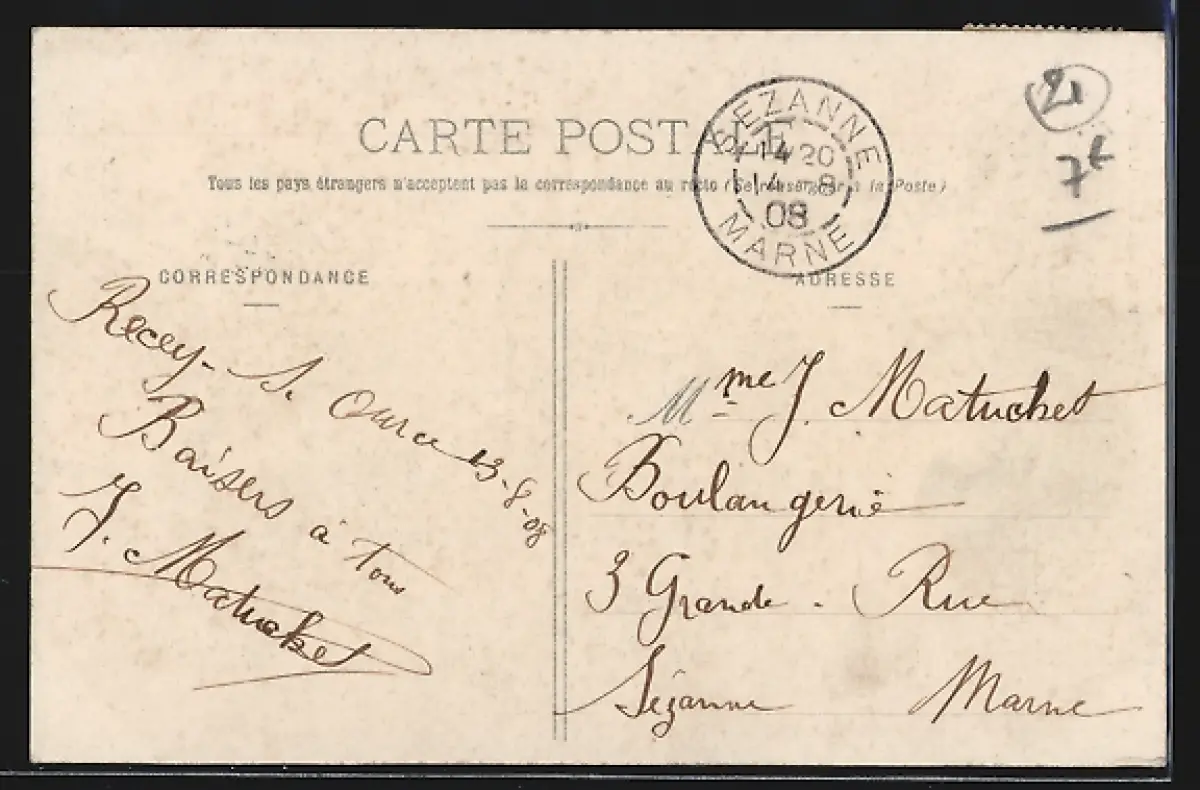 CARTE POSTALE
Tous les pays étrangers n'acceptent pas la correspondance au recto (Se renseigner à la Poste)
SEZANNE
14 20
14 - 8
08
MARNE
21
7f
CORRESPONDANCE
Recey-S. Ource 13-8-08
Baisers à Tous
J. Matuchet
ADRESSE
Mme J. Matuchet
Boulangerie
3 Grande. Rue
Sézanne Marne